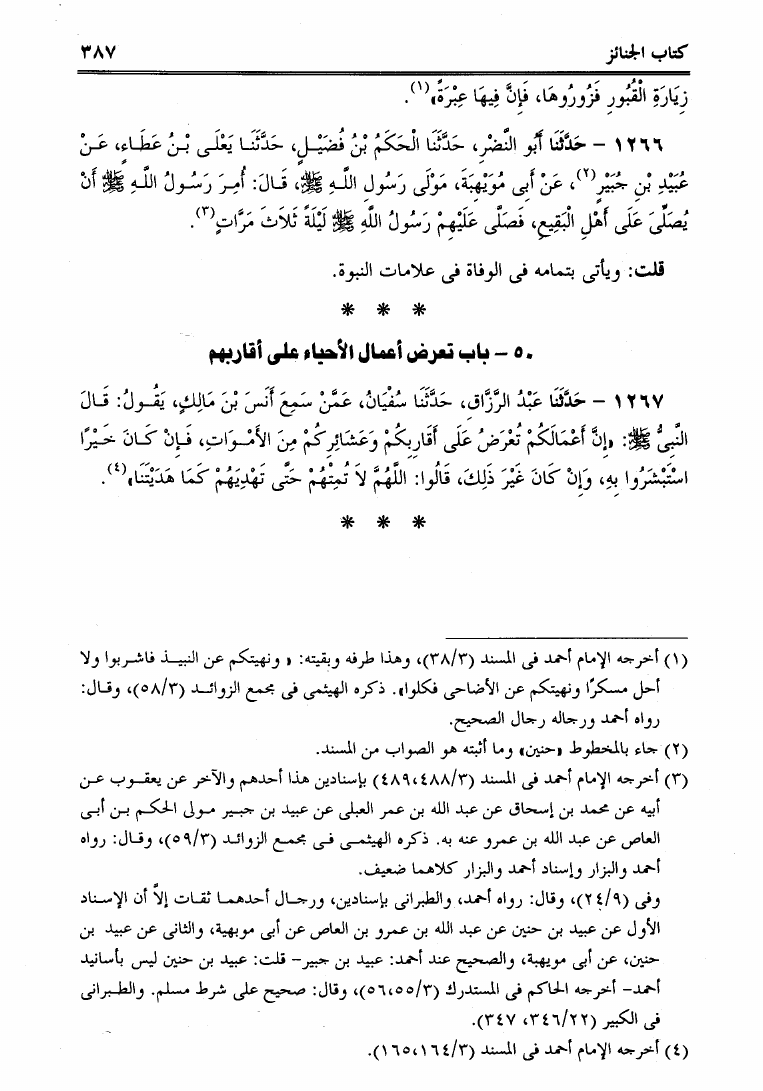 كتاب الجنائز ٣٨٧
زِيَارَةِ الْقُبُورِ فَزُورُوهَا، فَإِنَّ فِيهَا عِبْرَةً»(١).
١٢٦٦ – حَدَّثَنَا أَبُو النَّضْرِ، حَدَّثَنَا الْحَكَمُ بْنُ فُضَيْلٍ، حَدَّثَنَا يَعْلَى بْنُ عَطَاءٍ، عَنْ
عُبَيْدِ بْنِ جُبَيْرٍ(٢)، عَنْ أَبِى مُوَيْهِبَةَ، مَوْلَى رَسُولِ اللهِ ﷺ، قَالَ: أُمِرَ رَسُولُ اللهِ ﷺ أَنْ
يُصَلِّىَ عَلَى أَهْلِ الْبَقِيعِ، فَصَلَّى عَلَيْهِمْ رَسُولُ اللَّهِ ﷺ لَيْلَةً ثَلَاثَ مَرَّاتٍ(٣).
قلت: ويأتى بتمامه فى الوفاة فى علامات النبوة.
* * *
٥٠ – باب تعرض أعمال الأحياء على أقاربهم
١٢٦٧ – حَدَّثَنَا عَبْدُ الرَّزَّاقِ، حَدَّثَنَا سُفْيَانُ، عَمَّنْ سَمِعَ أَنَسَ بْنَ مَالِكٍ، يَقُولُ: قَالَ
النَّبِىُّ ﷺ: «إِنَّ أَعْمَالَكُمْ تُعْرَضُ عَلَى أَقَارِبِكُمْ وَعَشَائِرِكُمْ مِنَ الأَمْوَاتِ، فَإِنْ كَانَ خَيْرًا
اسْتَبْشَرُوا بِهِ، وَإِنْ كَانَ غَيْرَ ذَلِكَ، قَالُوا: اللَّهُمَّ لاَ تُمِتْهُمْ حَتَّى تَهْدِيَهُمْ كَمَا هَدَيْتَنَا»(٤).
* * *
(١) أخرجه الإمام أحمد فى المسند (٣٨/٣)، وهذا طرفه وبقيته: « ونهيتكم عن النبيذ فاشربوا ولا
أحل مسكرًا ونهيتكم عن الأضاحى فكلوا». ذكره الهيثمى فى مجمع الزوائد (٥٨/٣)، وقال:
رواه أحمد ورجاله رجال الصحيح.
(٢) جاء بالمخطوط «حنين» وما أثبته هو الصواب من المسند.
(٣) أخرجه الإمام أحمد فى المسند (٤٨٩،٤٨٨/٣) بإسنادين هذا أحدهم والآخر عن يعقوب عن
أبيه عن محمد بن إسحاق عن عبد الله بن عمر العبلى عن عبيد بن جبير مولى الحكم بن أبى
العاص عن عبد الله بن عمرو عنه به. ذكره الهيثمى فى مجمع الزوائد (٥٩/٣)، وقال: رواه
أحمد والبزار وإسناد أحمد والبزار كلاهما ضعيف.
وفى (٢٤/٩)، وقال: رواه أحمد، والطبرانى بإسنادين، ورجال أحدهما ثقات إلاَّ أن الإسناد
الأول عن عبيد بن حنين عن عبد الله بن عمرو بن العاص عن أبى موبهية، والثانى عن عبيد بن
حنين، عن أبى مويهبة، والصحيح عند أحمد: عبيد بن جبير– قلت: عبيد بن حنين ليس بأسانيد
أحمد– أخرجه الحاكم فى المستدرك (٥٦،٥٥/٣)، وقال: صحيح على شرط مسلم. والطبرانى
فى الكبير (٣٤٦/٢٢، ٣٤٧).
(٤) أخرجه الإمام أحمد فى المسند (١٦٥،١٦٤/٣).